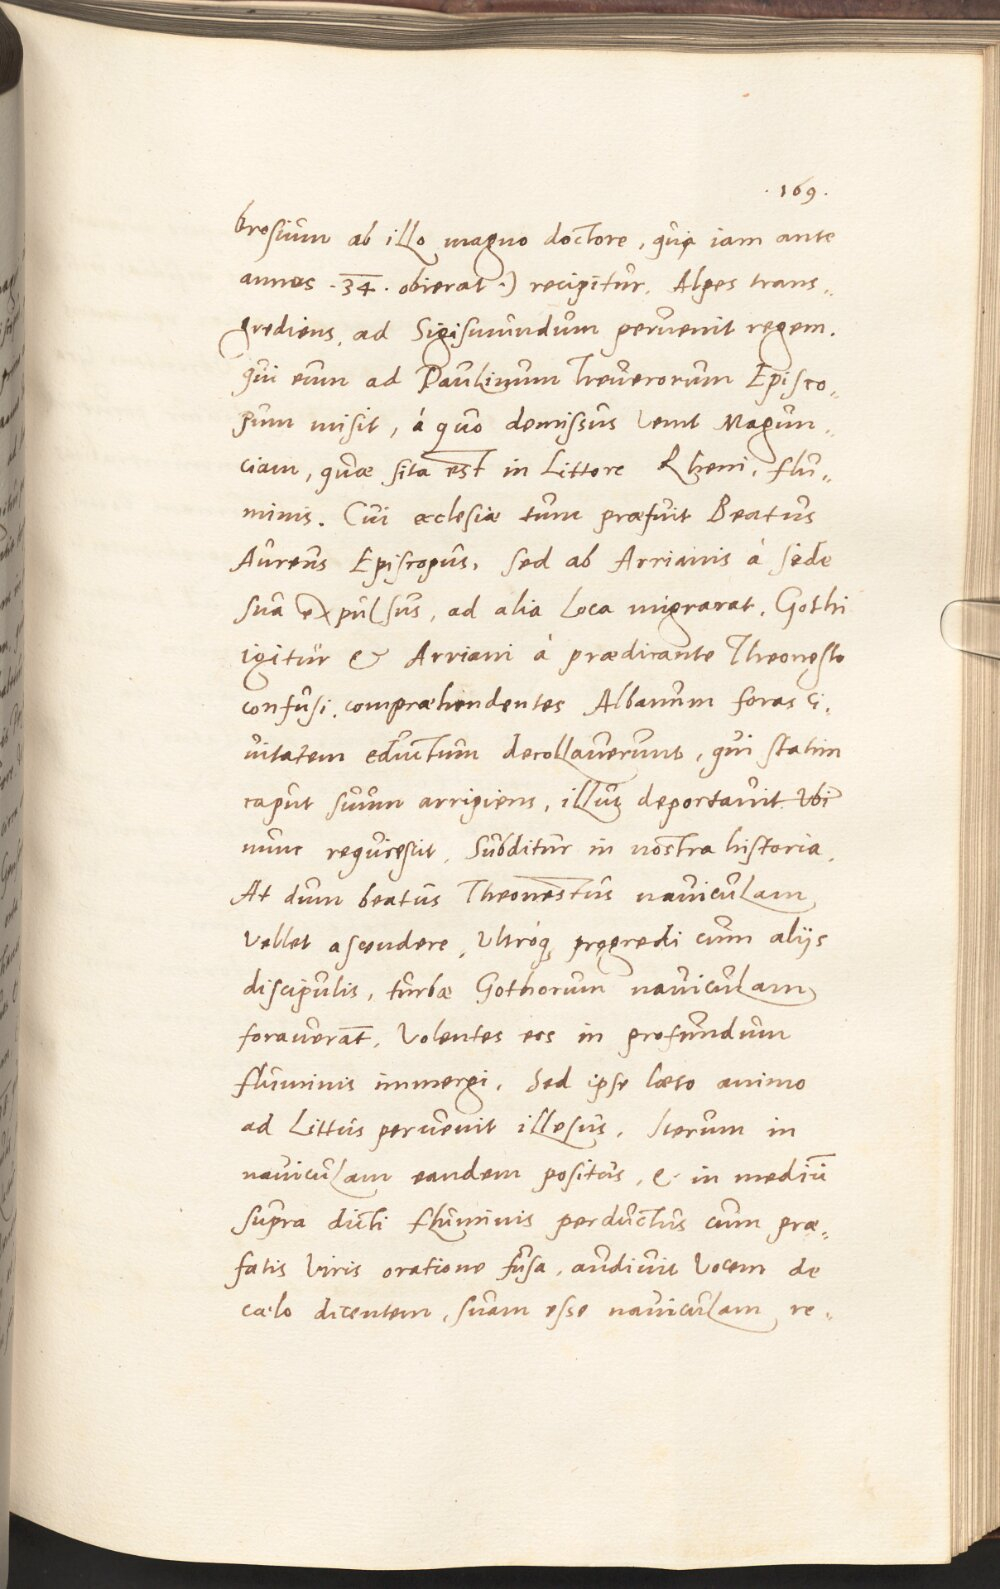 ·169·
brosium ab illo magno doctore, qui iam ante
annos ·34· obierat·) recipitur. Alpes trans„
grediens, ad Sigismundum peruenit regem.
qui eum ad Paulinum Treuerorum Episco„
pum misit, á quo demissus venit Magun„
ciam, quæ sita est in Littore Rheni, flu„
minis. Cui æclesiæ tum præfuit Beatus
Aureus Episcopus, sed ab Arrianis á sede
sua expulsus, ad alia loca migrarat. Gothi
igitur & Arriani á prædicante Theonesto
confusi, compræhendentes Albanum foras ci„
uitatem eductum decollauerunt, qui statim
caput suum arripiens, illuc deportauit Vbi
nunc requiescit, Subditur in nostra historia,
At dum beatus Theonestus nauiculam
vellet ascendere, Vltróq₃ progredi cum alijs
discipulis, turbæ Gothorum nauiculam
forauerāt, Volentes eos in profundum
fluminis immergi. Sed ipse læto animo
ad Littus peruenit illesus. Iterum in
nauiculam eandem positus, & in mediū
supra dicti fluminis perductus cum præ„
fatis Viris oratione fusa, audiuit Vocem de
cælo dicentem, suam esse nauiculam re„